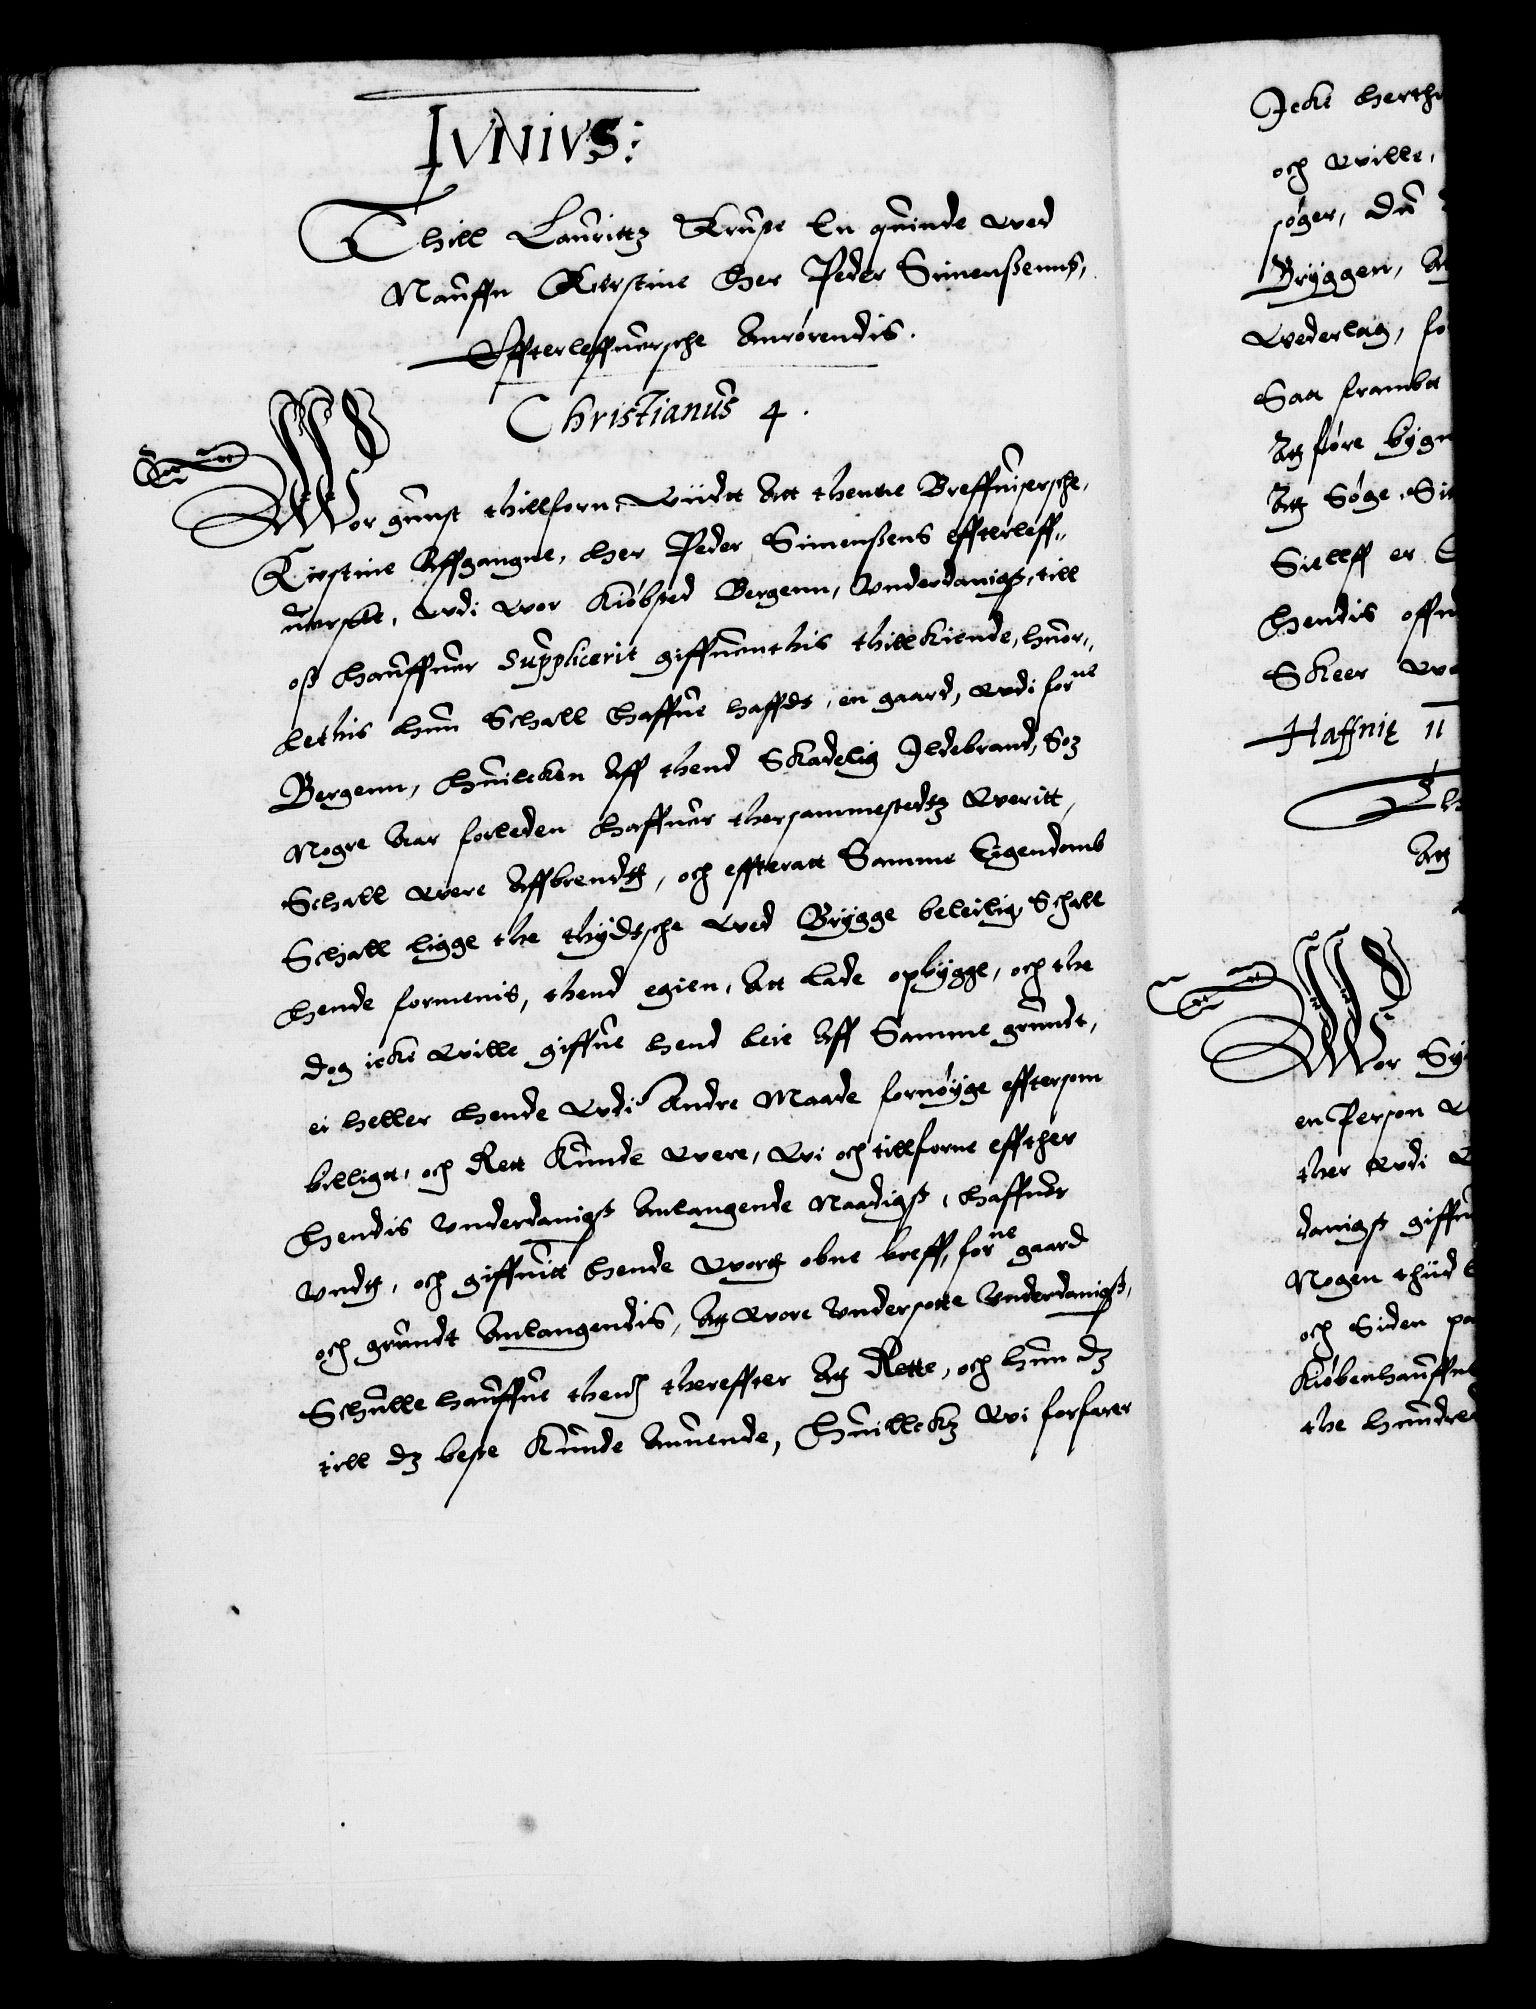 IVNIVS:
Thill Lauritz Kruse En quinde wed
Naffn Kirstine Her Peder Simenßenns,
Effterleffuersche Anrørendis.
Christianus 4.
Wor gunst thillforn, Wiidtt Att thenne Breffuisersche,
Kirstine Affgangne, Her Peder Simenßens effterleff„
uerske, wdi wor Kiøbsted Bergenn, Vnderdanigst, till
oß Hauffuer Supplicerit giffuenthis thillkiende, huor„
lethis Hun Schall Haffue haffdt, en gaard, wdi forne
Bergenn, Huilcken Aff thend Skadelig Jldebrand, Som
Nogre Aar forleden Haffuer thersammestedtz Weritt,
Schall were Affbrendtt, och effteratt Samme Eigendomb
Schall ligge the thydtsche wed Brygge beleilig, Schall
Hende formenis, thend egien, Att lade opbygge, och the
dog icke wille giffue hend leie Aff Samme grundt,
ei heller Hende wdi Andre Maade fornøyge efftersom
billigt, och Rett Kunde were, Wi och tillforne effther
Hendis Vnderdanigst Anlangende Naadigst, Haffuer
Vndtt, och giffuitt Hende wortt obne breff, forne gaard
och grundt Anlangendis, Att wore Vndersotte Vnderdanigst,
Schulle hauffue thend thereffter Att Rette, och hun dz
till dz beste Kunde Anuende, Huillckz Wi forfarer
Icke herth
och wille,
søger, du
Bryggen,
Wederlag,
Saa frambt
Att føre bygn
Att Søge
Sielff er
Hendis
Skeer
Haffnię 11
Att
Wor
en Person
ther wdi
danigst
Nogen thiid
och Siden
Kiøbenhauffn
the hundred